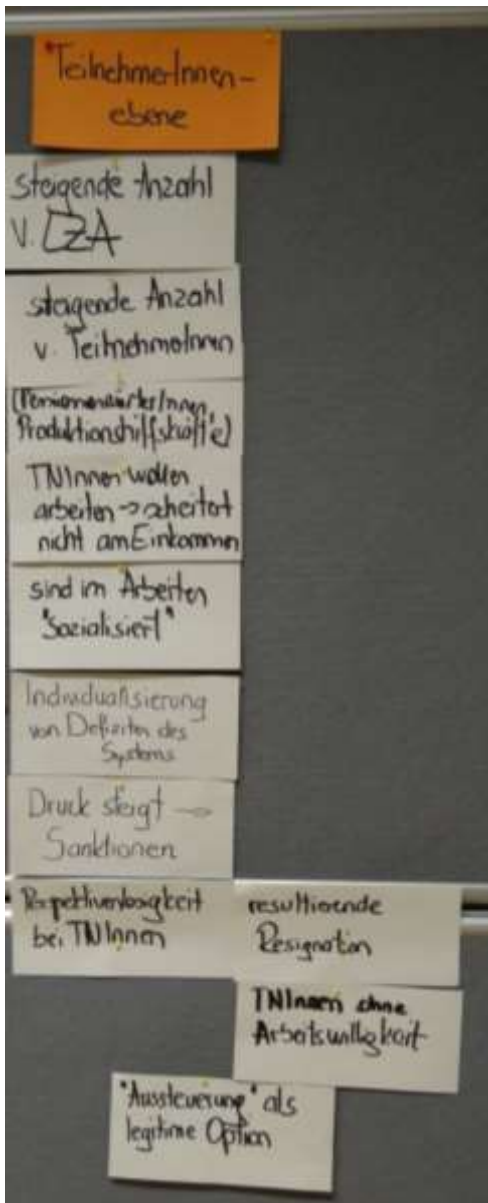 TeilnehmerInnen-
ebene
steigende Anzahl
v. LZA
steigende Anzahl
v. TeilnehmerInnen
(PensionswärterInnen,
Produktionshilfskräfte)
TNInnen wollen
arbeiten → scheitert
nicht am Einkommen
sind im Arbeiten
"sozialisiert"
Individualisierung
von Defiziten des
Systems
Druck steigt →
Sanktionen
Perspektivenlosigkeit
bei TNInnen
resultierende
Resignation
TNInnen ohne
Arbeitswilligkeit
"Aussteuerung" als
legitime Option